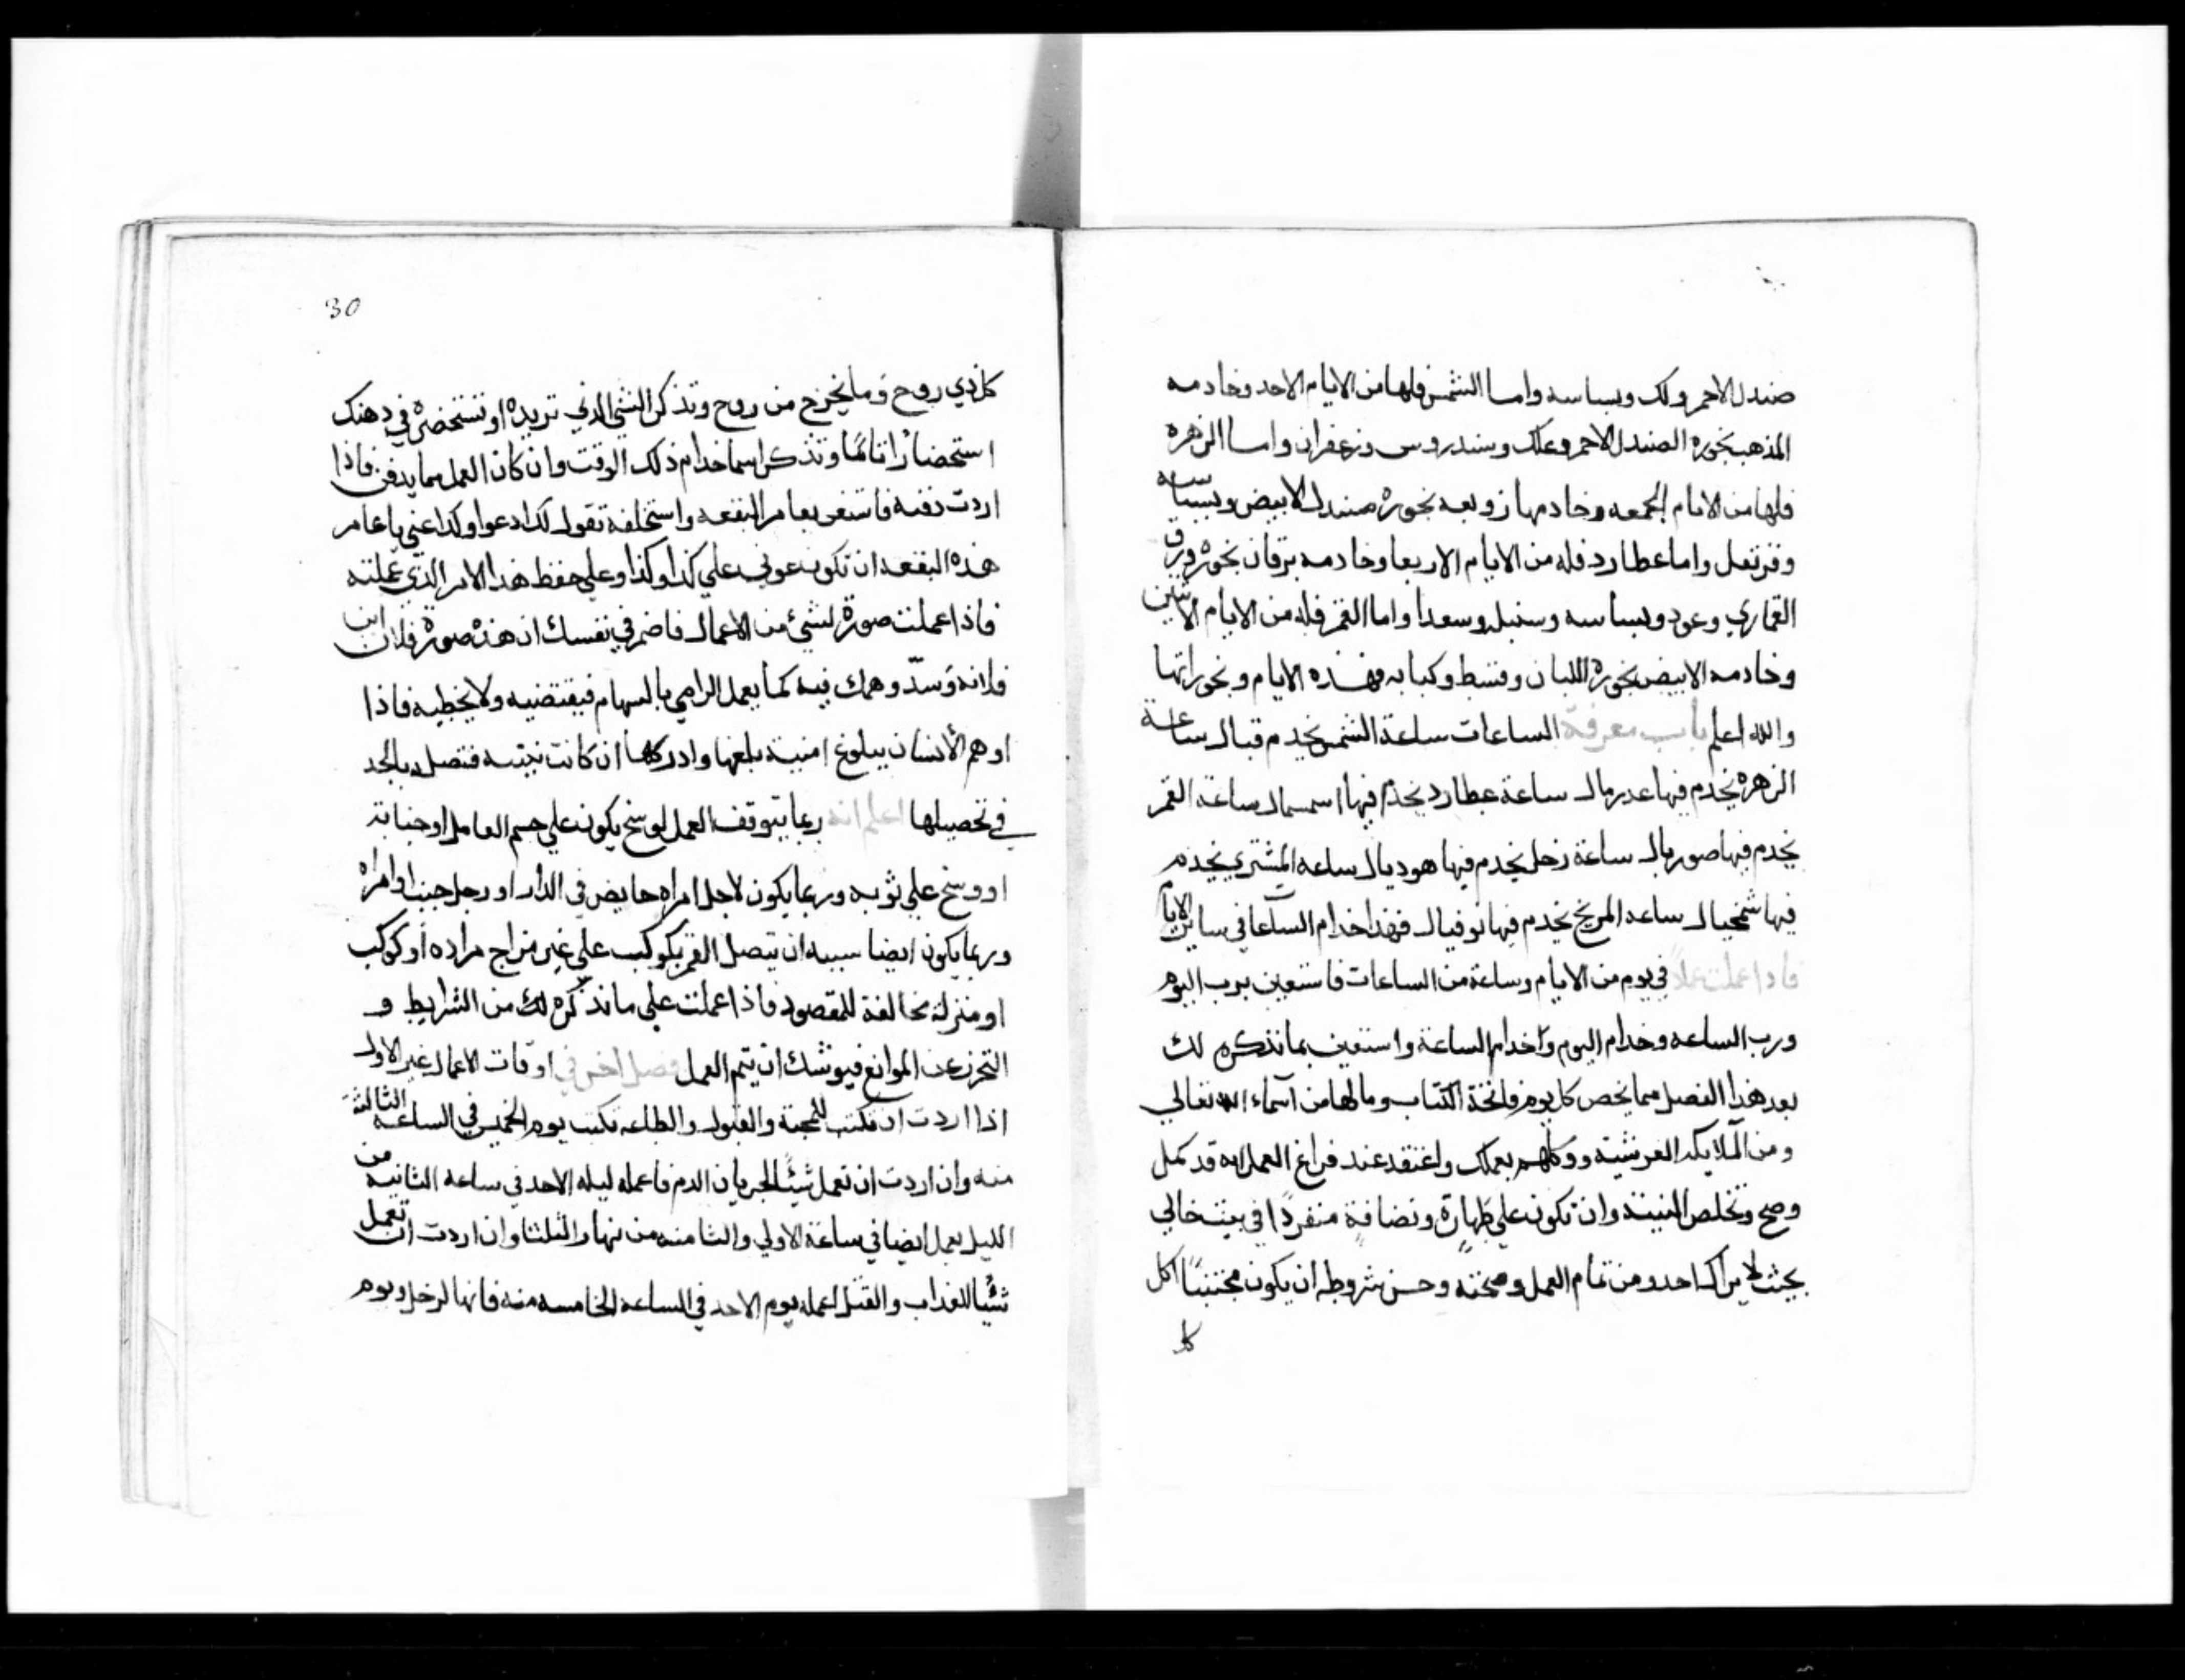 صندل الاحمر ولك وبسباسه واما الشمس فلها من الايام الاحد وخادمه
المذهب بخوره الصندل الاحمر وعلك وسندروس وزعفران واما الزهرة
فلها من الايام الجمعه وخادمها زوبعه بخوره صندل الابيض وبسباسه
وقرنفل واما عطارد فله من الايام الاربعا وخادمه برقان بخوره ورق
القماري وعود وبسباسه وسنبل وسعدا واما القمر فله من الايام الاثنين
وخادمه الابيض بخوره اللبان وقسط وكبابه فهذه الايام وبخوراتها
والله اعلم باب معرفة الساعات ساعة الشمس يخدم قبال ساعة
الزهره يخدم فيها عدرمال ساعة عطارد يخدم فيها اسمسمال ساعة القمر
يخدم فيها صوربال ساعة زحل يخدم فيها هوديال ساعه المشتري يخدم
فيها شمخيال ساعه المريخ يخدم فيها نوفيال فهذا خدام الساعا في ساير الايام
فاذا عملت عملاً في يوم من الايام وساعة من الساعات فاستعين برب اليوم
ورب الساعه وخدام اليوم وخدام الساعة واستعين بما نذكره لك
بعد هذا الفصل مما يخص كل يوم فاتخذ الكتاب وما لها من اسماء الله تعالي
ومن الملايكه العرشية ووكلهم بعملك واعتقد عند فراغ العمل انه قد كمل
وصح وتخلص النية وان تكون علي طهارة ونضافة منفرداً في بيت خالي
بحيث لا يراك احد ومن تمام العمل وصحته وحسن شروطه ان يكون مجتنباً اكل
كل
30
كل ذي روح وما يخرج من روح وتذكر الشي الذي تريده او تستحضره في دهنك
استحضارا تاما وتذكر اسما خدام ذلك الوقت وان كان العمل مما يدفن فاذا
اردت دفنه فاستعن بعامر البقعه واستخلفه تقول كذا دعوا وكذا عني يا عامر
هذه البقعه ان تكون عوني علي كذا وكذا وعلي حفظ هذا الامر الذي عملته
فاذا عملت صورة لشئ من الاعمال فاضمر في نفسك ان هذه صورة فلان ابن
فلانه وسدّ وهمك فيه كما يعمل الرامي بالسهام فيقتضيه ولا يخطيه فاذا
اوهم الأنسان ببلوغ امنية بلغها وادركها ان كانت نيته فتصل بالجد
في تحصيلها اعلم انه ربما يتوقف العمل لوسخ يكون علي جسم العامل او جنابة
او وسخ علي ثوبه وربما يكون لاجل امراه حايض في الدار او رجل جنب او امراه
وربما يكون ايضا سببه ان يتصل القمر بكوكب علي غير مزاج مراده او كوكب
او منزلة مخالفة للمقصود فاذا عملت علي ما نذكره لك من الشرايط و
التحرز عن الموانع فيوشك ان يتم العمل فصل اخر في اوقات الاعمال غير الاول
اذا اردت ان تكتب للمحبة والقبول والطاعه تكتب يوم الخميس في الساعه الثالثة
منه وان اردت ان تعمل شيئا لجريان الدم فاعمله ليله الاحد في ساعه الثانيه من
الليل يعمل ايضا في ساعة الاولي والثامنه من نهار الثلثا وان اردت ان تعمل
شيئا للعذاب والقتل اعمله يوم الاحد في الساعه الخامسه منه فانها لزحل ويوم